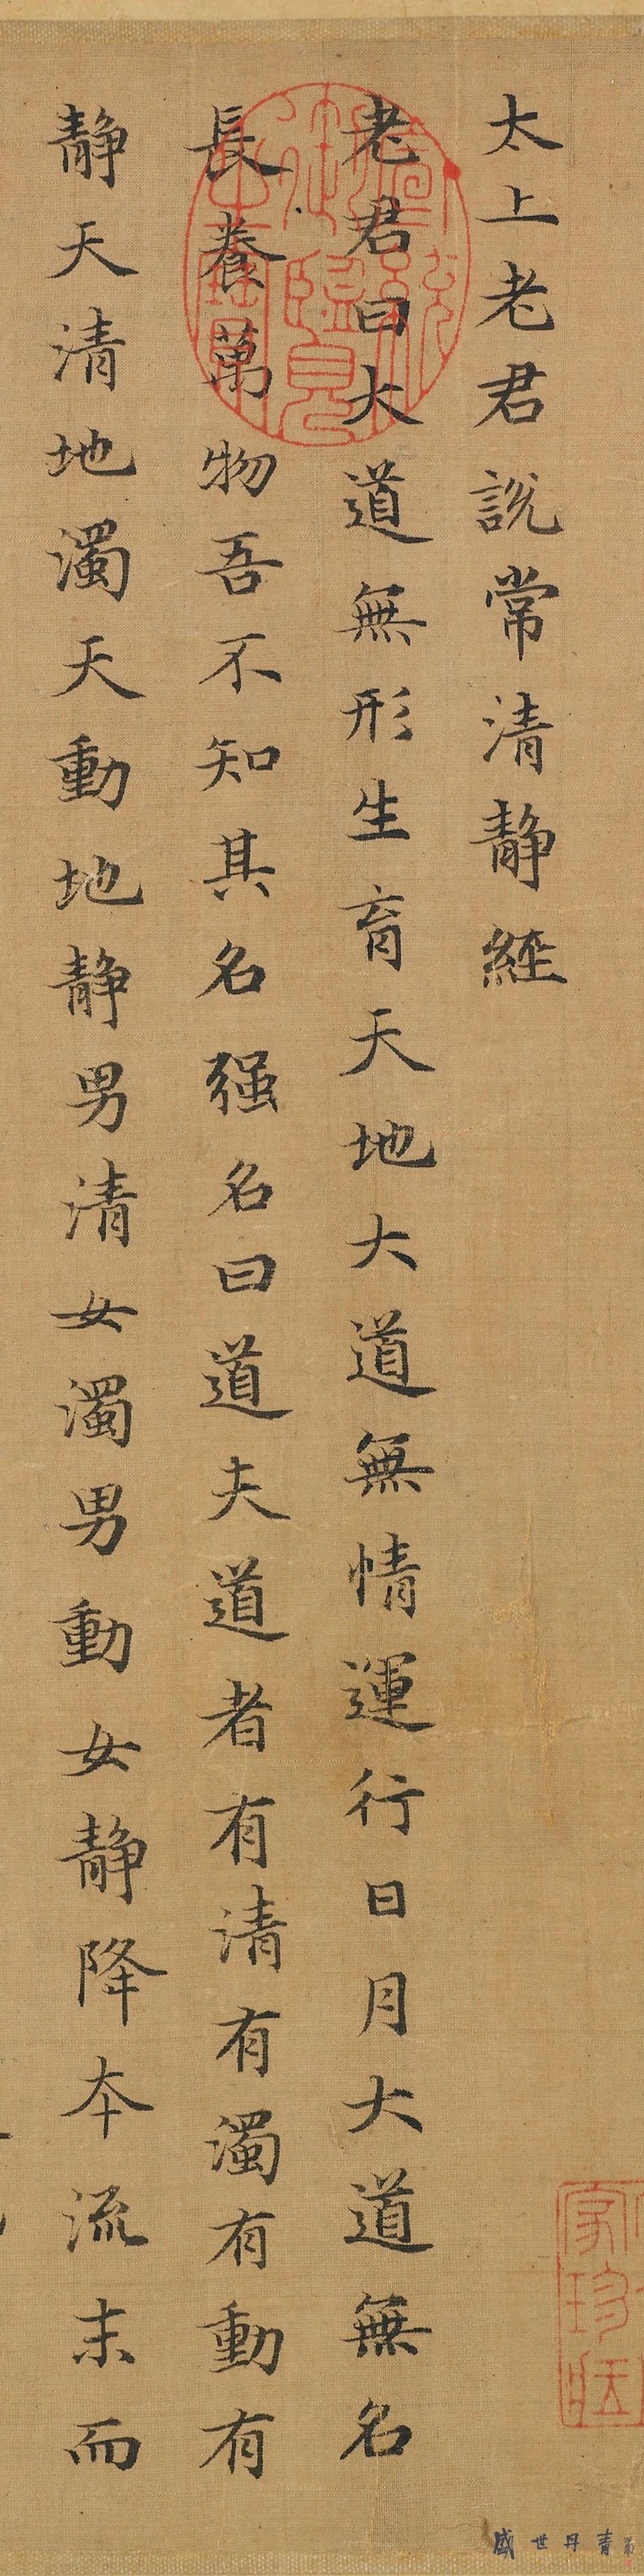 太上老君說常清靜經
老君曰大道無形生育天地大道無情運行日月大道無名
長養萬物吾不知其名强名曰道夫道者有清有濁有動有
靜天清地濁天動地靜男清女濁男動女靜降本流末而
宣統御覽之寶
家珍
盛世丹青